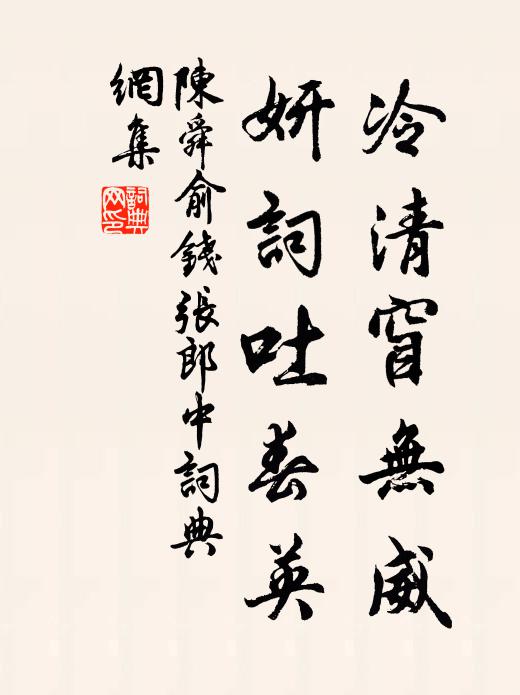 冷清窅無威
妍詞吐春英
陳舜俞錢張郎中詞典
網集
詞典網印